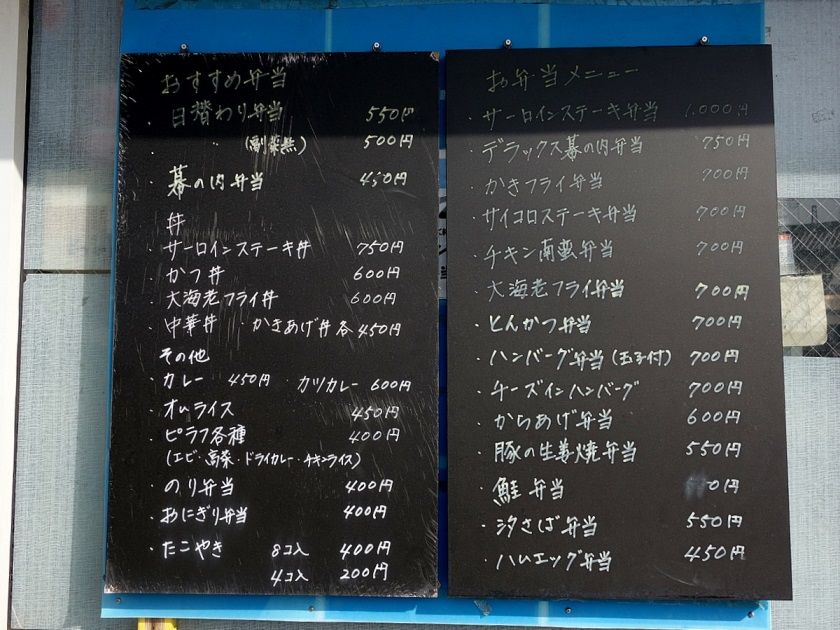 おすすめ弁当
・日替わり弁当 550円
・〃 (副菜無) 500円
・幕の内弁当 450円
丼
・サーロインステーキ丼 750円
・かつ丼 600円
・大海老フライ丼 600円
・中華丼 ・かきあげ丼各450円
その他
・カレー 450円 ・カツカレー 600円
・オムライス 450円
・ピラフ各種 400円
(エビ・高菜・ドライカレー・チキンライス)
・のり弁当 400円
・おにぎり弁当 400円
・たこやき 8コ入 400円
4コ入 200円
お弁当メニュー
・サーロインステーキ弁当 1,000円
・デラックス幕の内弁当 750円
・かきフライ弁当 700円
・サイコロステーキ弁当 700円
・チキン南蛮弁当 700円
・大海老フライ弁当 700円
・とんかつ弁当 700円
・ハンバーグ弁当(玉子付) 700円
・チーズインハンバーグ 700円
・からあげ弁当 600円
・豚の生姜焼弁当 550円
・鮭弁当 0円
・汐さば弁当 550円
・ハムエッグ弁当 450円